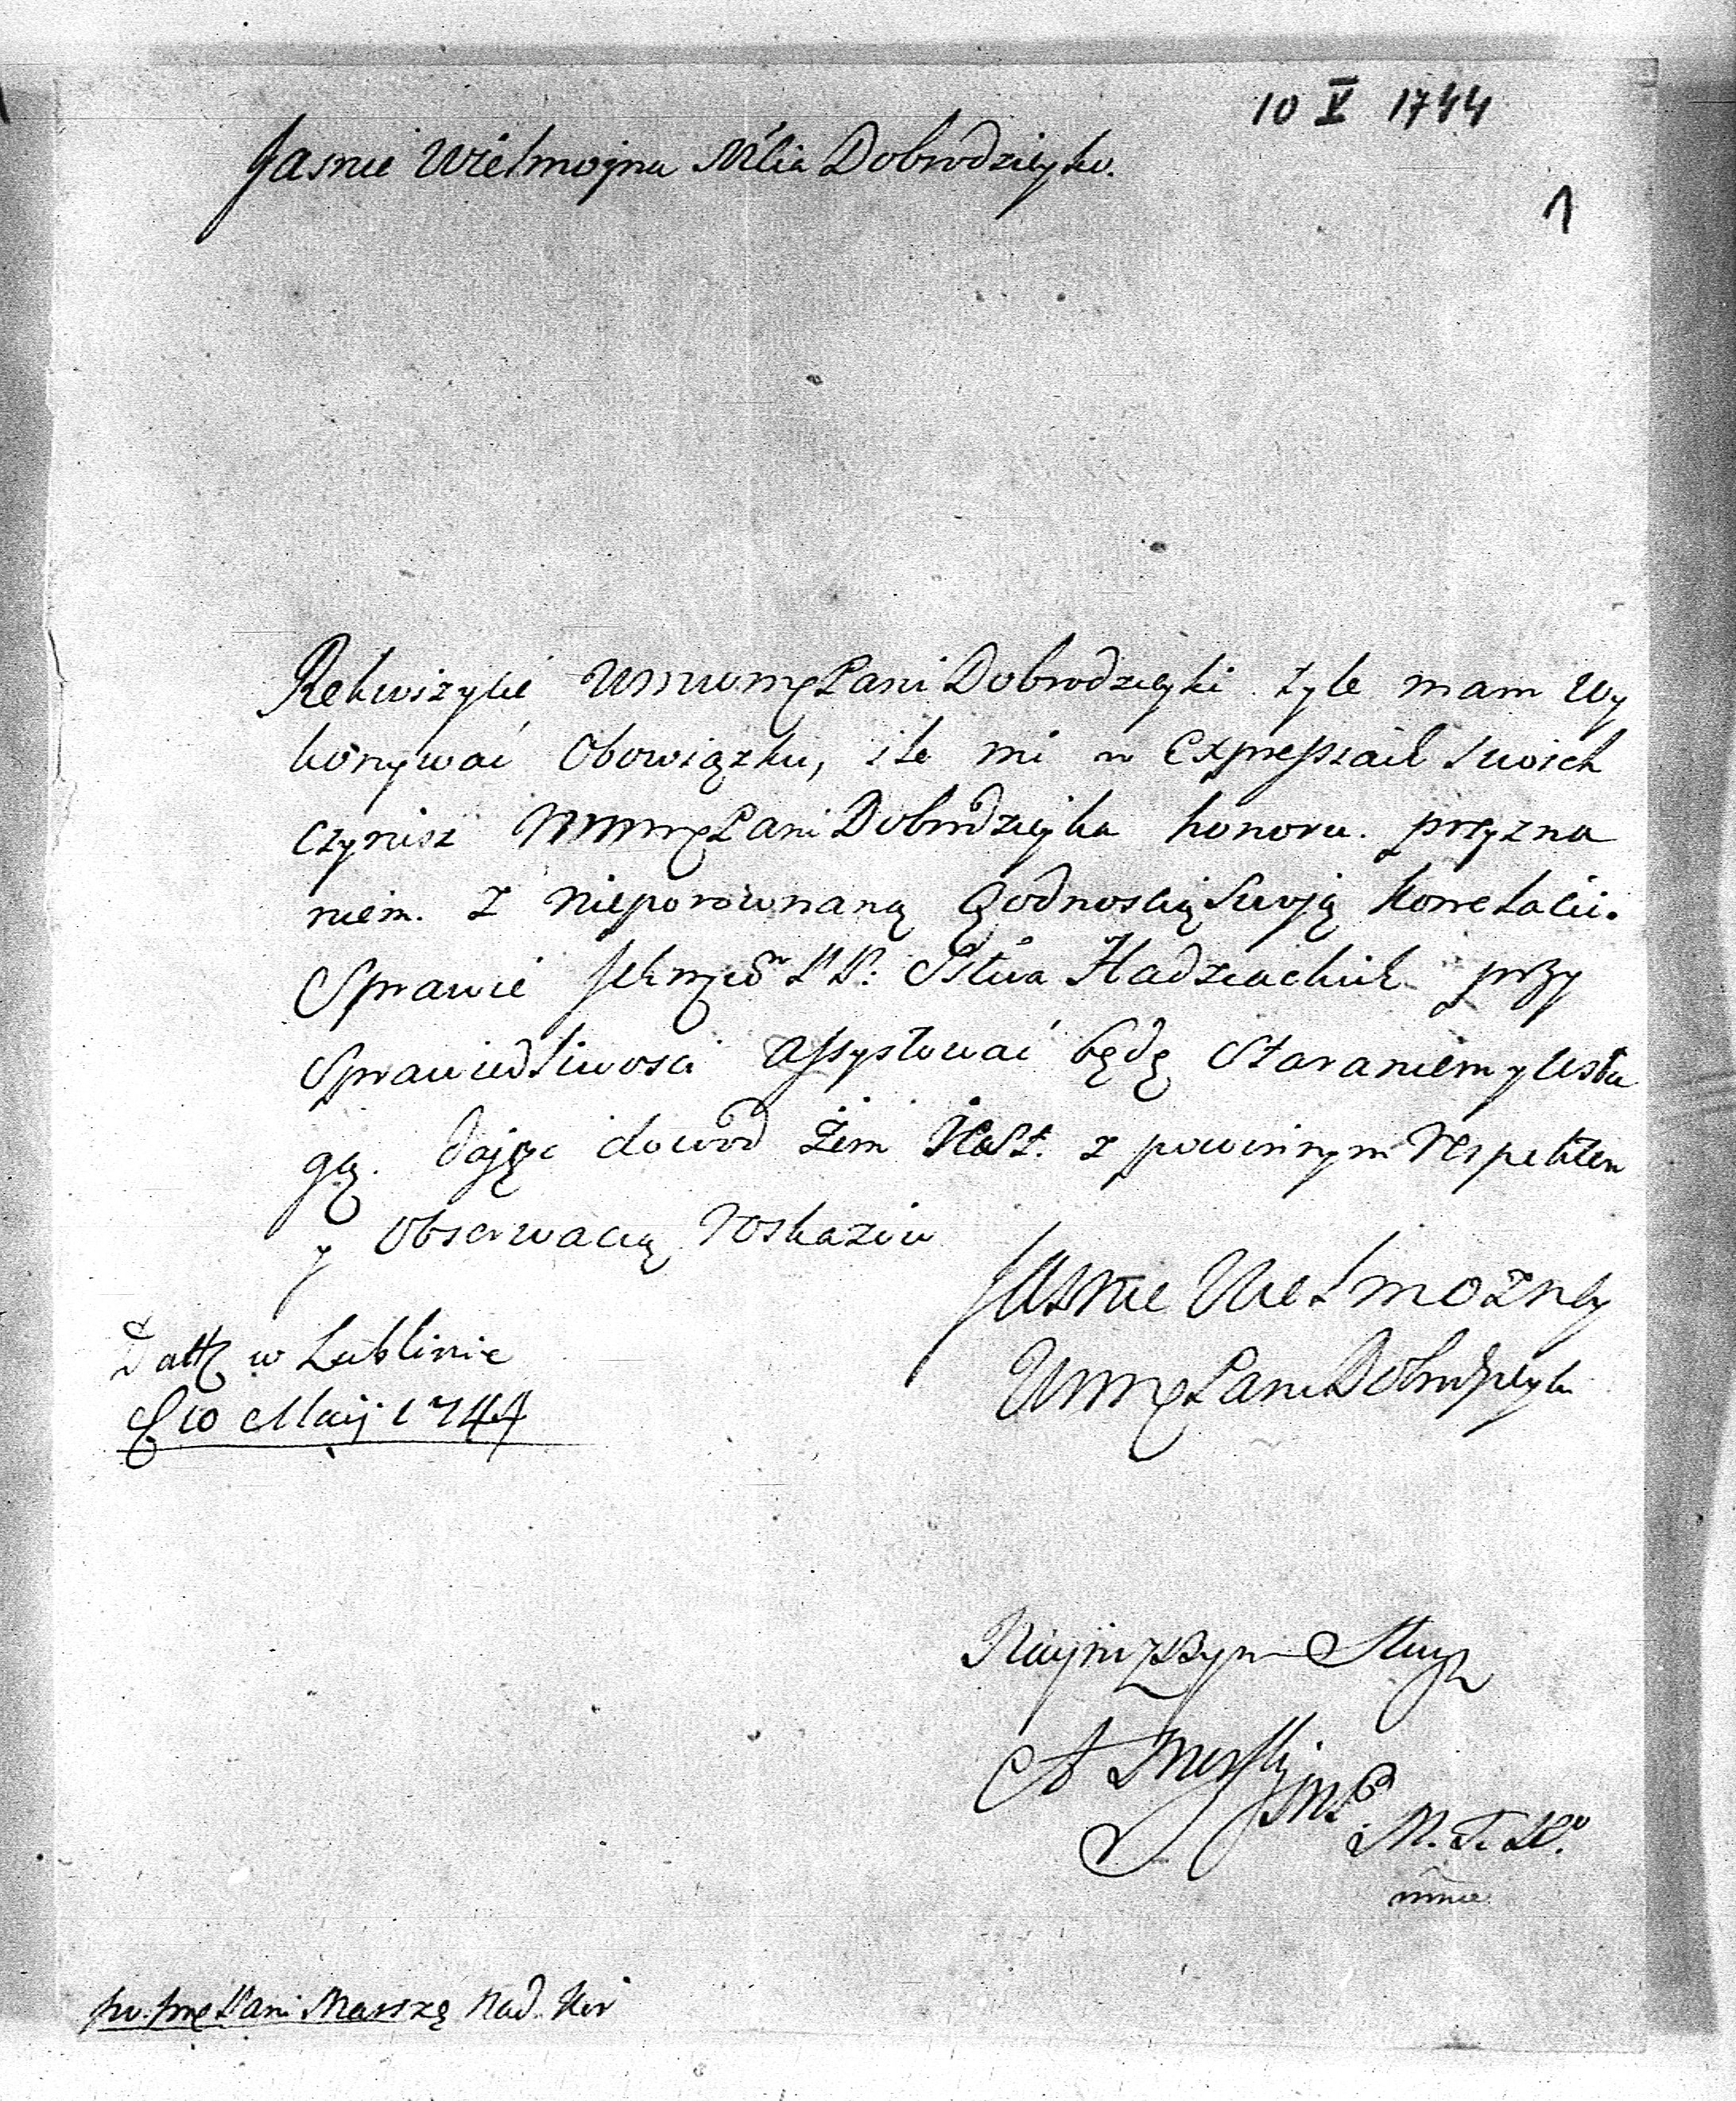 10 V 1744
Jasnie Wielmożna Mścia Dobrodzieyko.
1
Rekwizycie WMWMę Pani Dobrodzieyki tyle mam wy
konywać obowiązku, ile mi w Expressiach swoich
czynisz WMMę Pani Dobrodzieyka honoru. przyzna
niem. z nieporównaną godnoscią swoją korrelacii.
Sprawie Jchmciow PP: Pstwa Hadziackich przy
sprawiedliwosci assystować będę staraniem y usłu
gą. dając dowód żem iest. z powinnym respektem
y obserwacią roskazow
Jasnie Wielmożney
WMMę Pani Dobrodzieyki
Datt w Lublinie
d 10 Maij 1744
Nayniższym Sługą
M. T. K.
mmp
Jw. Jmę Pani Marszę Nad. Kor